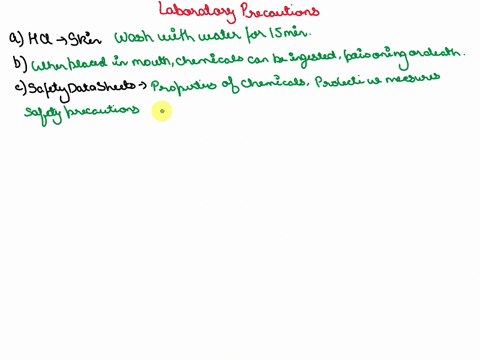 Laboratory Precautions
a) HCl → Skin Wash with water for 15 min.
b) When placed in mouth, chemicals can be ingested, poisoning or death.
c) Safety Data Sheets → Properties of Chemicals, Protective measures
Safety precautions